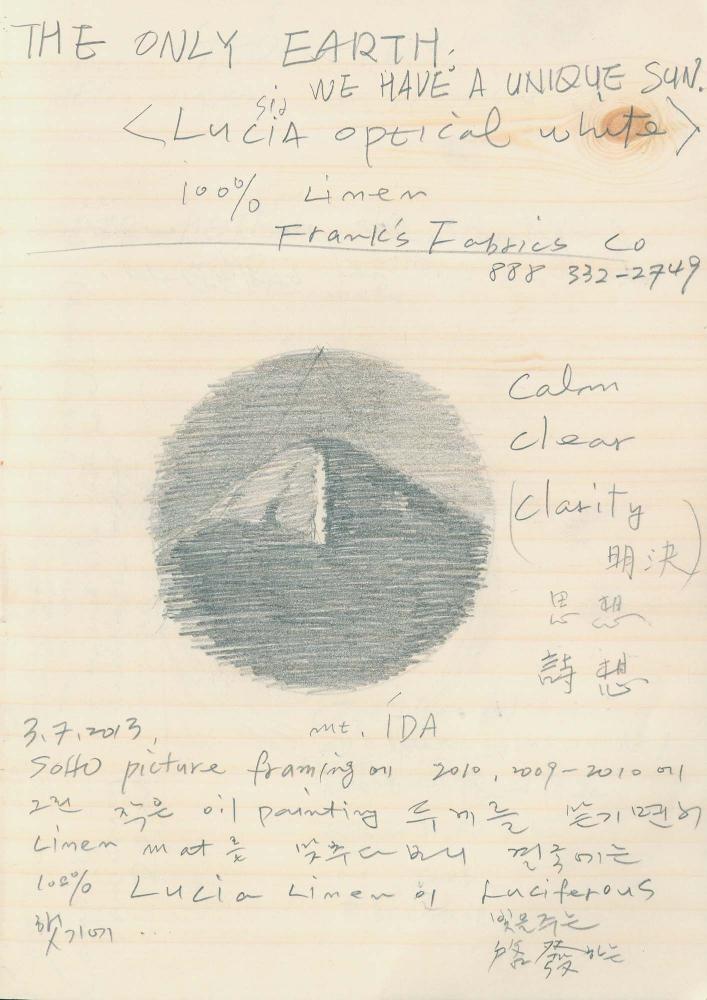 THE ONLY EARTH;
WE HAVE A UNIQUE SUN.
<LUCIA optical white>
100% Linen
Frank's Fabrics Co
888 332-2749
Calm
Clear
(Clarity
明決)
思想
詩想
mt. IDA
3.7.2013,
SOHO picture framing에 2010, 2009-2010에
그린 작은 oil painting 두개를 맡기면서
Linen mat를 맞추다보니 결국에는
100% Lucia Linen이 Luciferous
했기에...
빛을주는
啓發하는